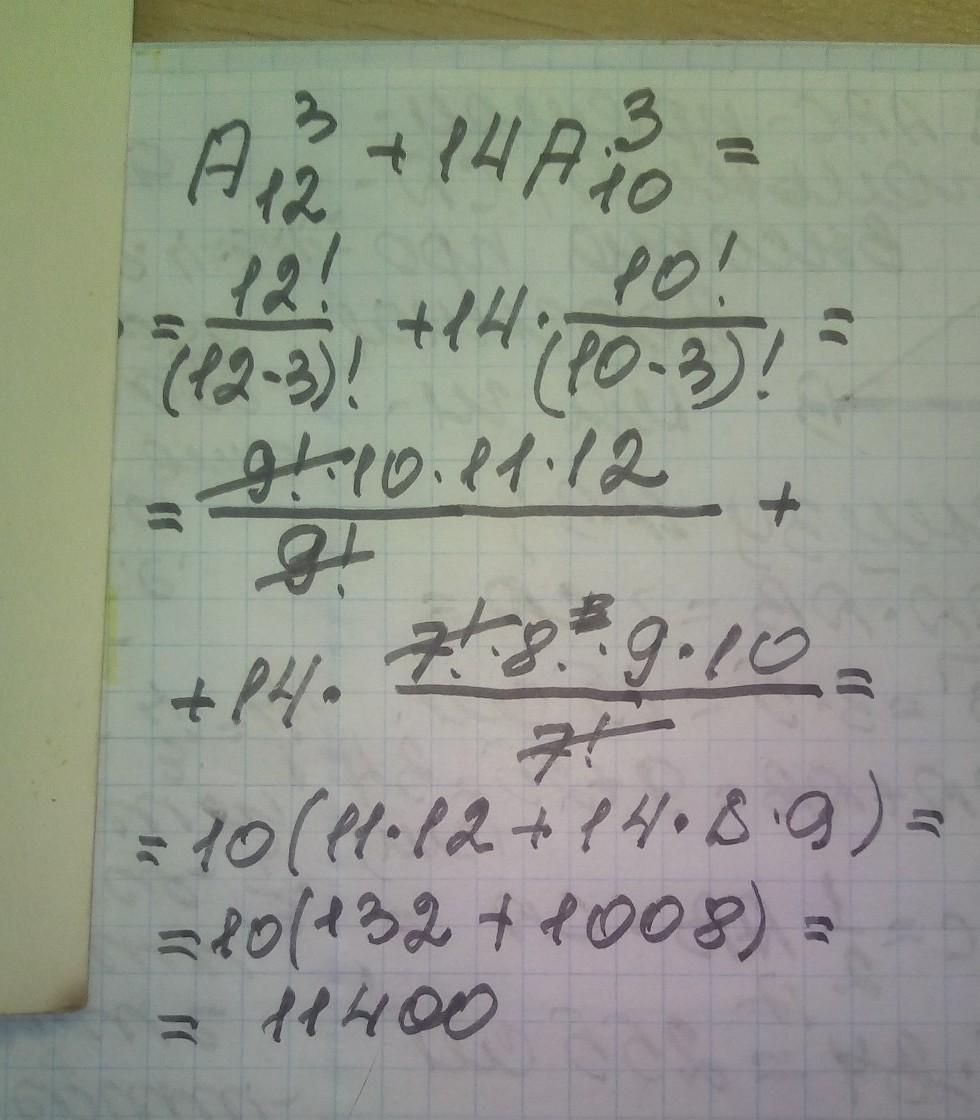 A₁₂³ + 14A₁₀³ =
= 12!/(12-3)! + 14 · 10!/(10-3)! =
= 9!·10·11·12/9! +
+ 14 · 7!·8·9·10/7! =
= 10(11·12 + 14·8·9) =
= 10(132 + 1008) =
= 11400